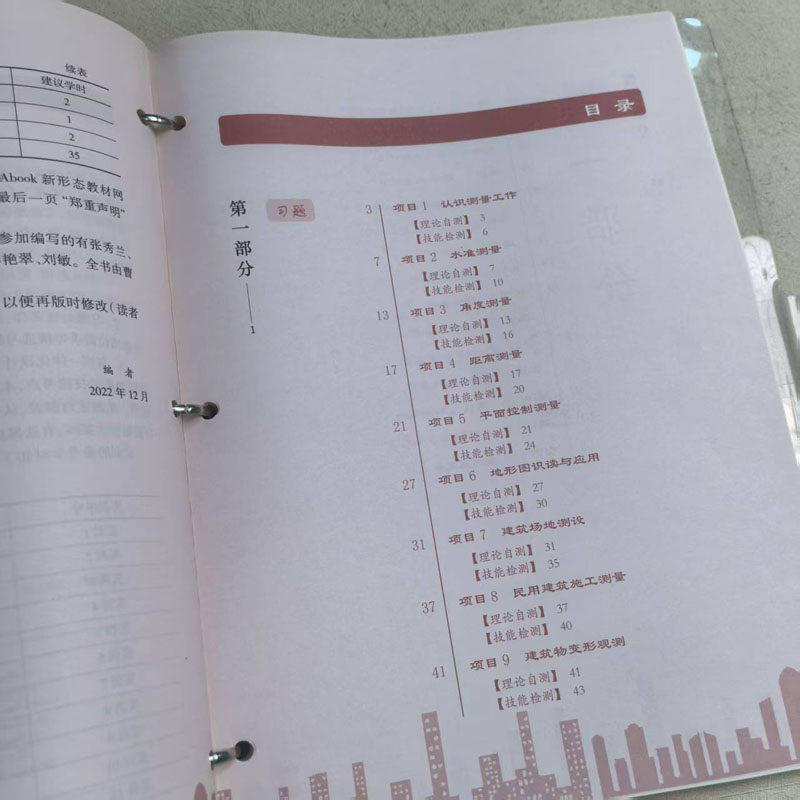 续表
建议学时
2
1
2
35
Abook 新形态教材网
最后一页“郑重声明”
参加编写的有张秀兰、
艳翠、刘敏。全书由曹
以便再版时修改(读者
编 者
2022年12月
目 录
第一部分——1
习题
3 项目1 认识测量工作
【理论自测】 3
【技能检测】 6
7 项目2 水准测量
【理论自测】 7
【技能检测】 10
13 项目3 角度测量
【理论自测】 13
【技能检测】 16
17 项目4 距离测量
【理论自测】 17
【技能检测】 20
21 项目5 平面控制测量
【理论自测】 21
【技能检测】 24
27 项目6 地形图识读与应用
【理论自测】 27
【技能检测】 30
31 项目7 建筑场地测设
【理论自测】 31
【技能检测】 35
37 项目8 民用建筑施工测量
【理论自测】 37
【技能检测】 40
41 项目9 建筑物变形观测
【理论自测】 41
【技能检测】 43